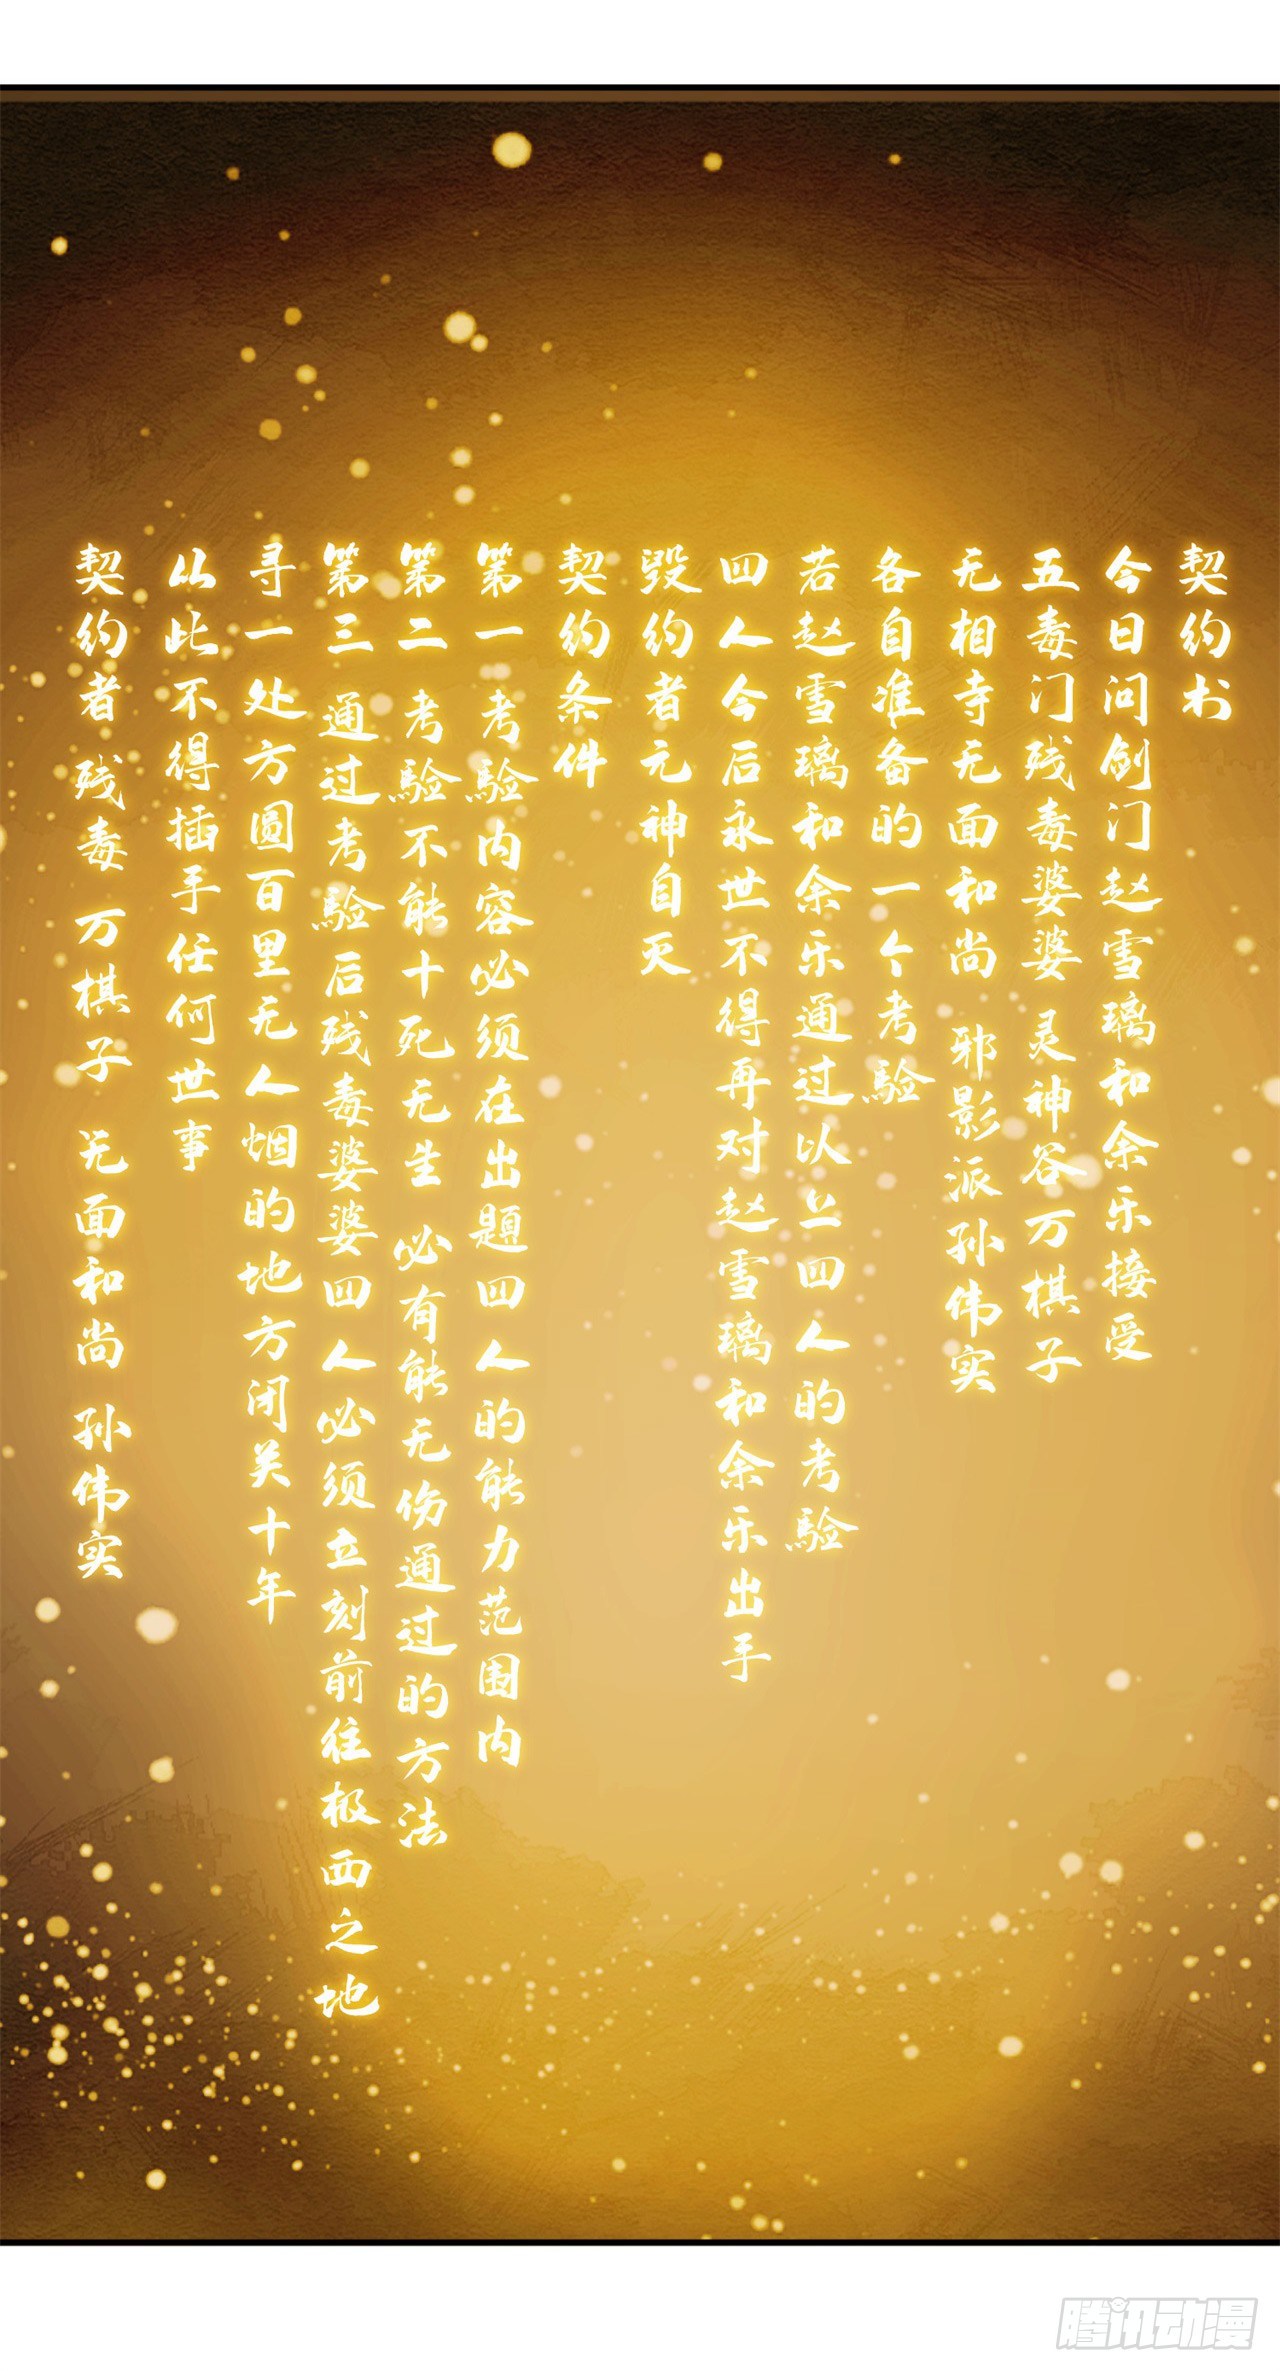 契约书
今日问剑门赵雪璃和余乐接受
五毒门残毒婆婆 灵神谷万棋子
无相寺无面和尚 邪影派孙伟实
各自准备的一个考验
若赵雪璃和余乐通过以上四人的考验
四人今后永世不得再对赵雪璃和余乐出手
毁约者元神自灭
契约条件
第一 考验内容必须在出题四人的能力范围内
第二 考验不能十死无生 必有能无伤通过的方法
第三 通过考验后残毒婆婆四人必须立刻前往极西之地
寻一处方圆百里无人烟的地方闭关十年
从此不得插手任何世事
契约者 残毒 万棋子 无面和尚 孙伟实
腾讯动漫